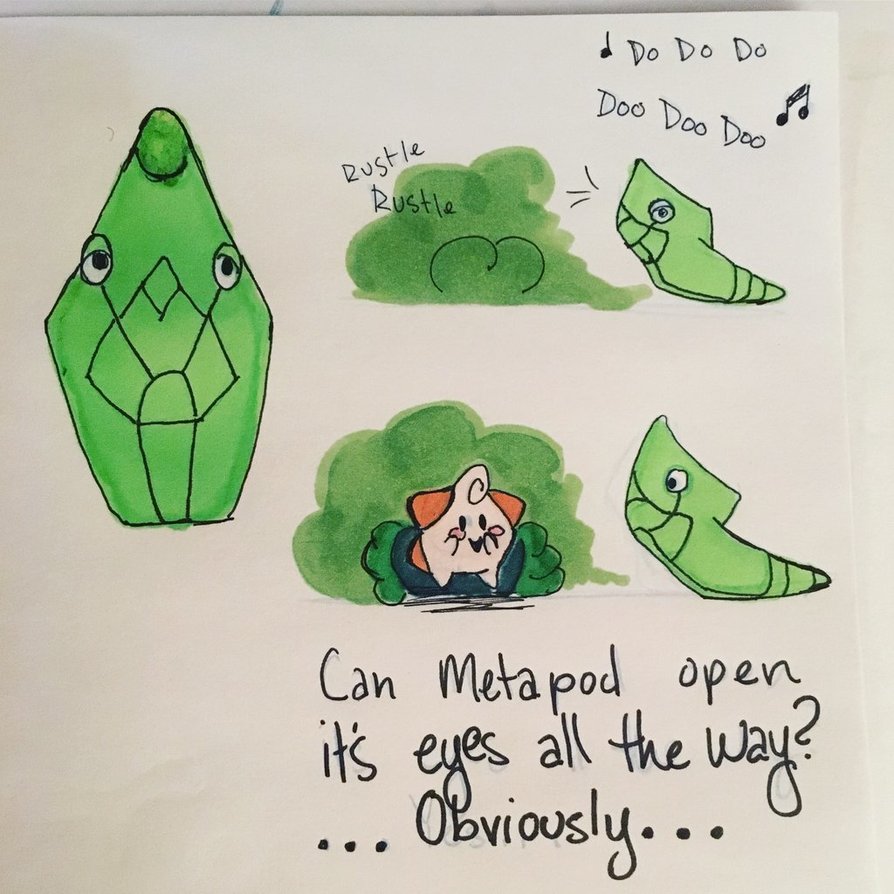 ♩ Do Do Do
Doo Doo Doo ♫
Rustle
Rustle
Can Metapod open
it's eyes all the way?
... Obviously...